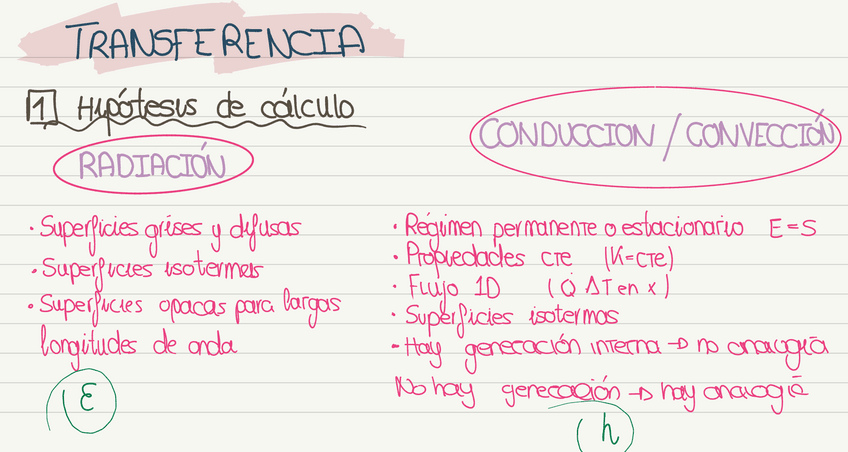 TRANSFERENCIA
1 Hipótesis de cálculo
RADIACIÓN
· Superficies grises y difusas
· Superficies isotermas
· Superficies opacas para largas
longitudes de onda
ε
CONDUCCION / CONVECCIÓN
· Régimen permanente o estacionario E=S
· Propiedades cte (K=cte)
· Flujo 1D (Q̇ ΔT en x)
· Superficies isotermas
- Hay generación interna → no analogía
No hay generación → hay analogía
h